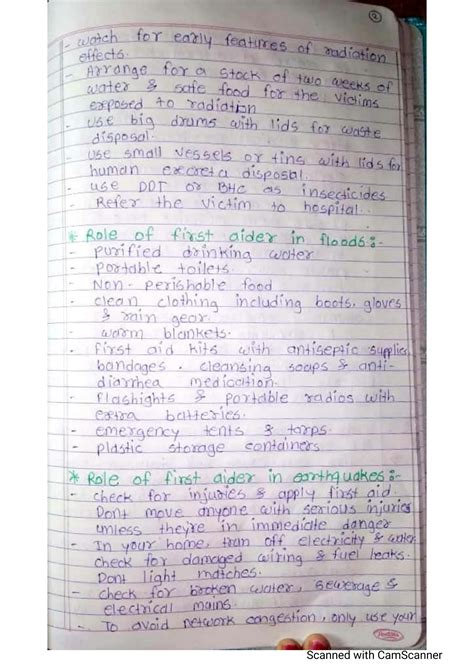 2
- watch for early features of radiation
effects.
- Arrange for a stock of two weeks of
water & safe food for the victims
exposed to radiation
- use big drums with lids for waste
disposal.
- use small vessels or tins with lids for
human excreta disposal.
- use DDT or BHC as insecticides
- Refer the victim to hospital.
* Role of first aider in floods :-
- purified drinking water
- portable toilets.
- Non-perishable food
- clean clothing including boots, gloves
& rain gear.
- warm blankets.
- first aid kits with antiseptic supplies
bandages. cleansing soaps & anti-
diarrhea medication.
- flashights & portable radios with
extra batteries.
- emergency tents & tarps.
- plastic storage containers
* Role of first aider in earthquakes :-
- check for injuries & apply first aid.
Dont move anyone with serious injuries
unless theyre in immediate danger
- In your home, tran off electricity & water
check for damaged wiring & fuel leaks.
Dont light matches.
- check for broken water, sewerage &
electrical mains.
- To avoid network congestion, only use your
Scanned with CamScanner